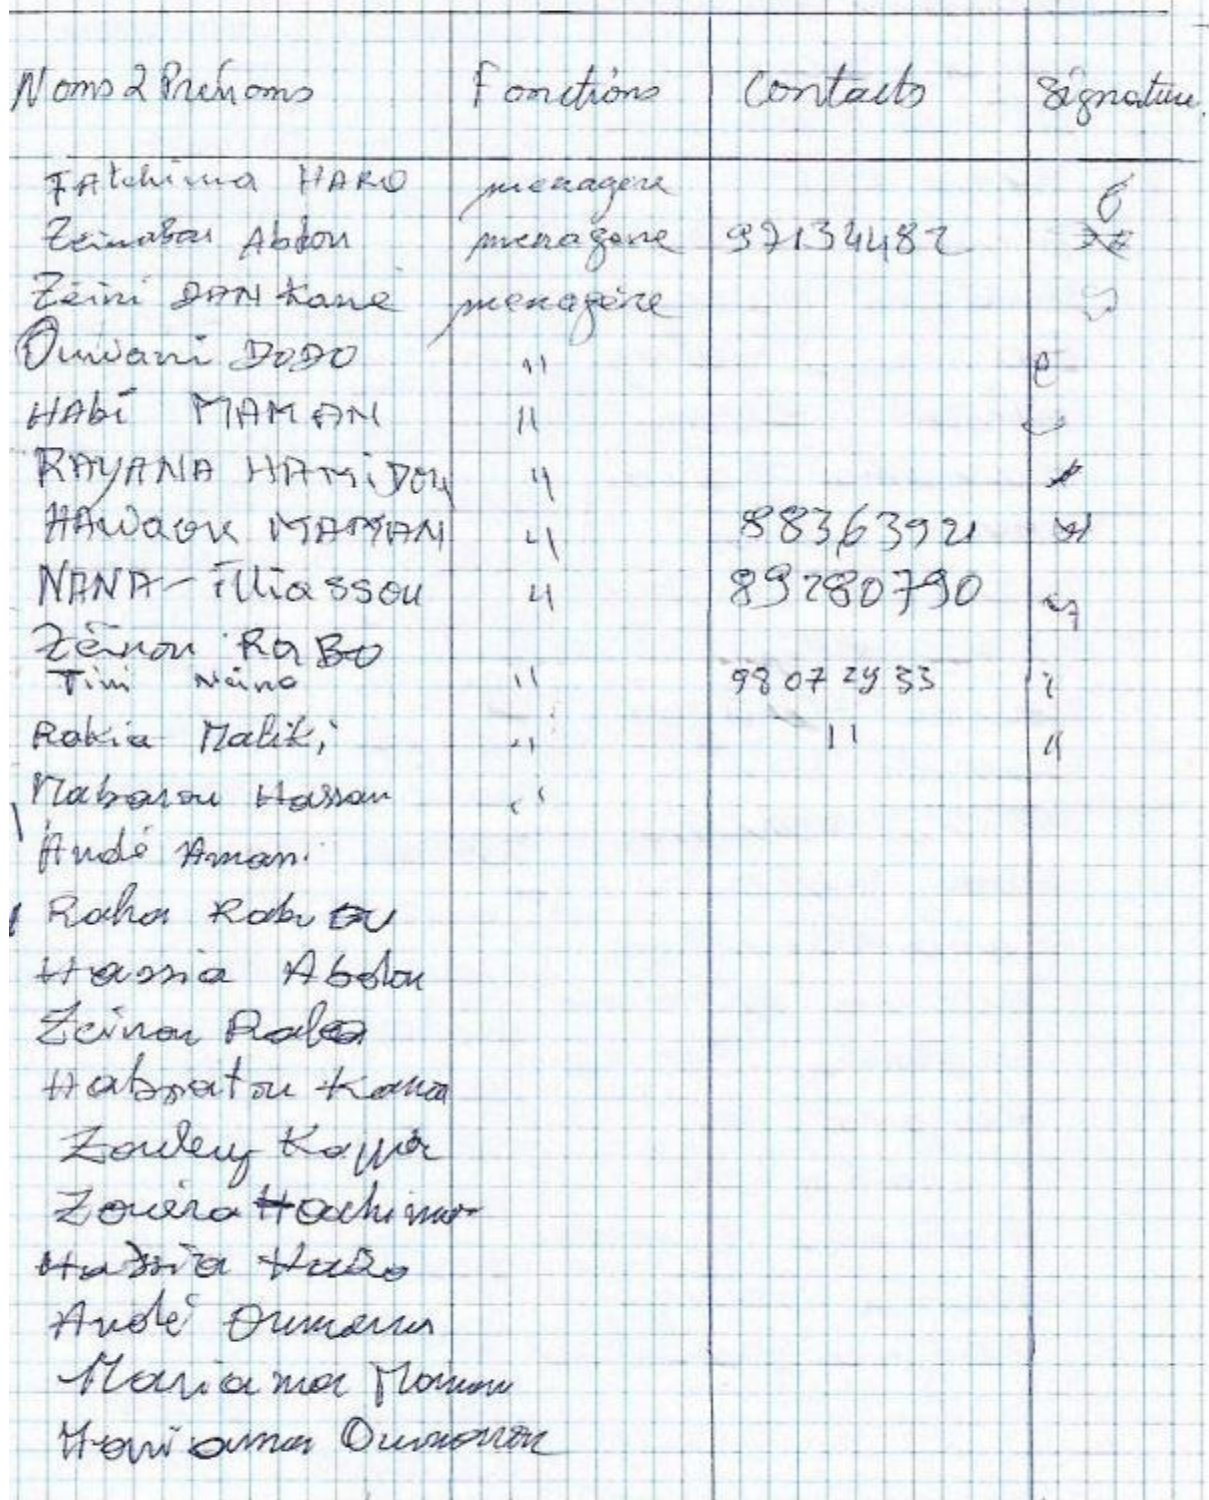 Noms & Prénoms Fonctions Contacts Signature.
FAtchima HARO menagère
Zeinabou Abdou menagère 97134482
Zeini DAN Kané menagère
Ouwani DODO "
HAbi MAMAN "
RAYANA HAMiDOU "
HAWAOU MAMAN " 88363921
NANA-illiassou " 89280790
Zeinou RaBO
Tini Neino " 98 07 29 33
Rakia Maliki " " "
Mabarou Hassan "
Andé Amani
Raha Rabiou
Hassia Abdou
Zeinou Rabo
Habsatou Kana
Zouley
Zouéra Hachima
Hassia Haro
Andé Oumarou
Mariama Maman
Mariama Oumarou